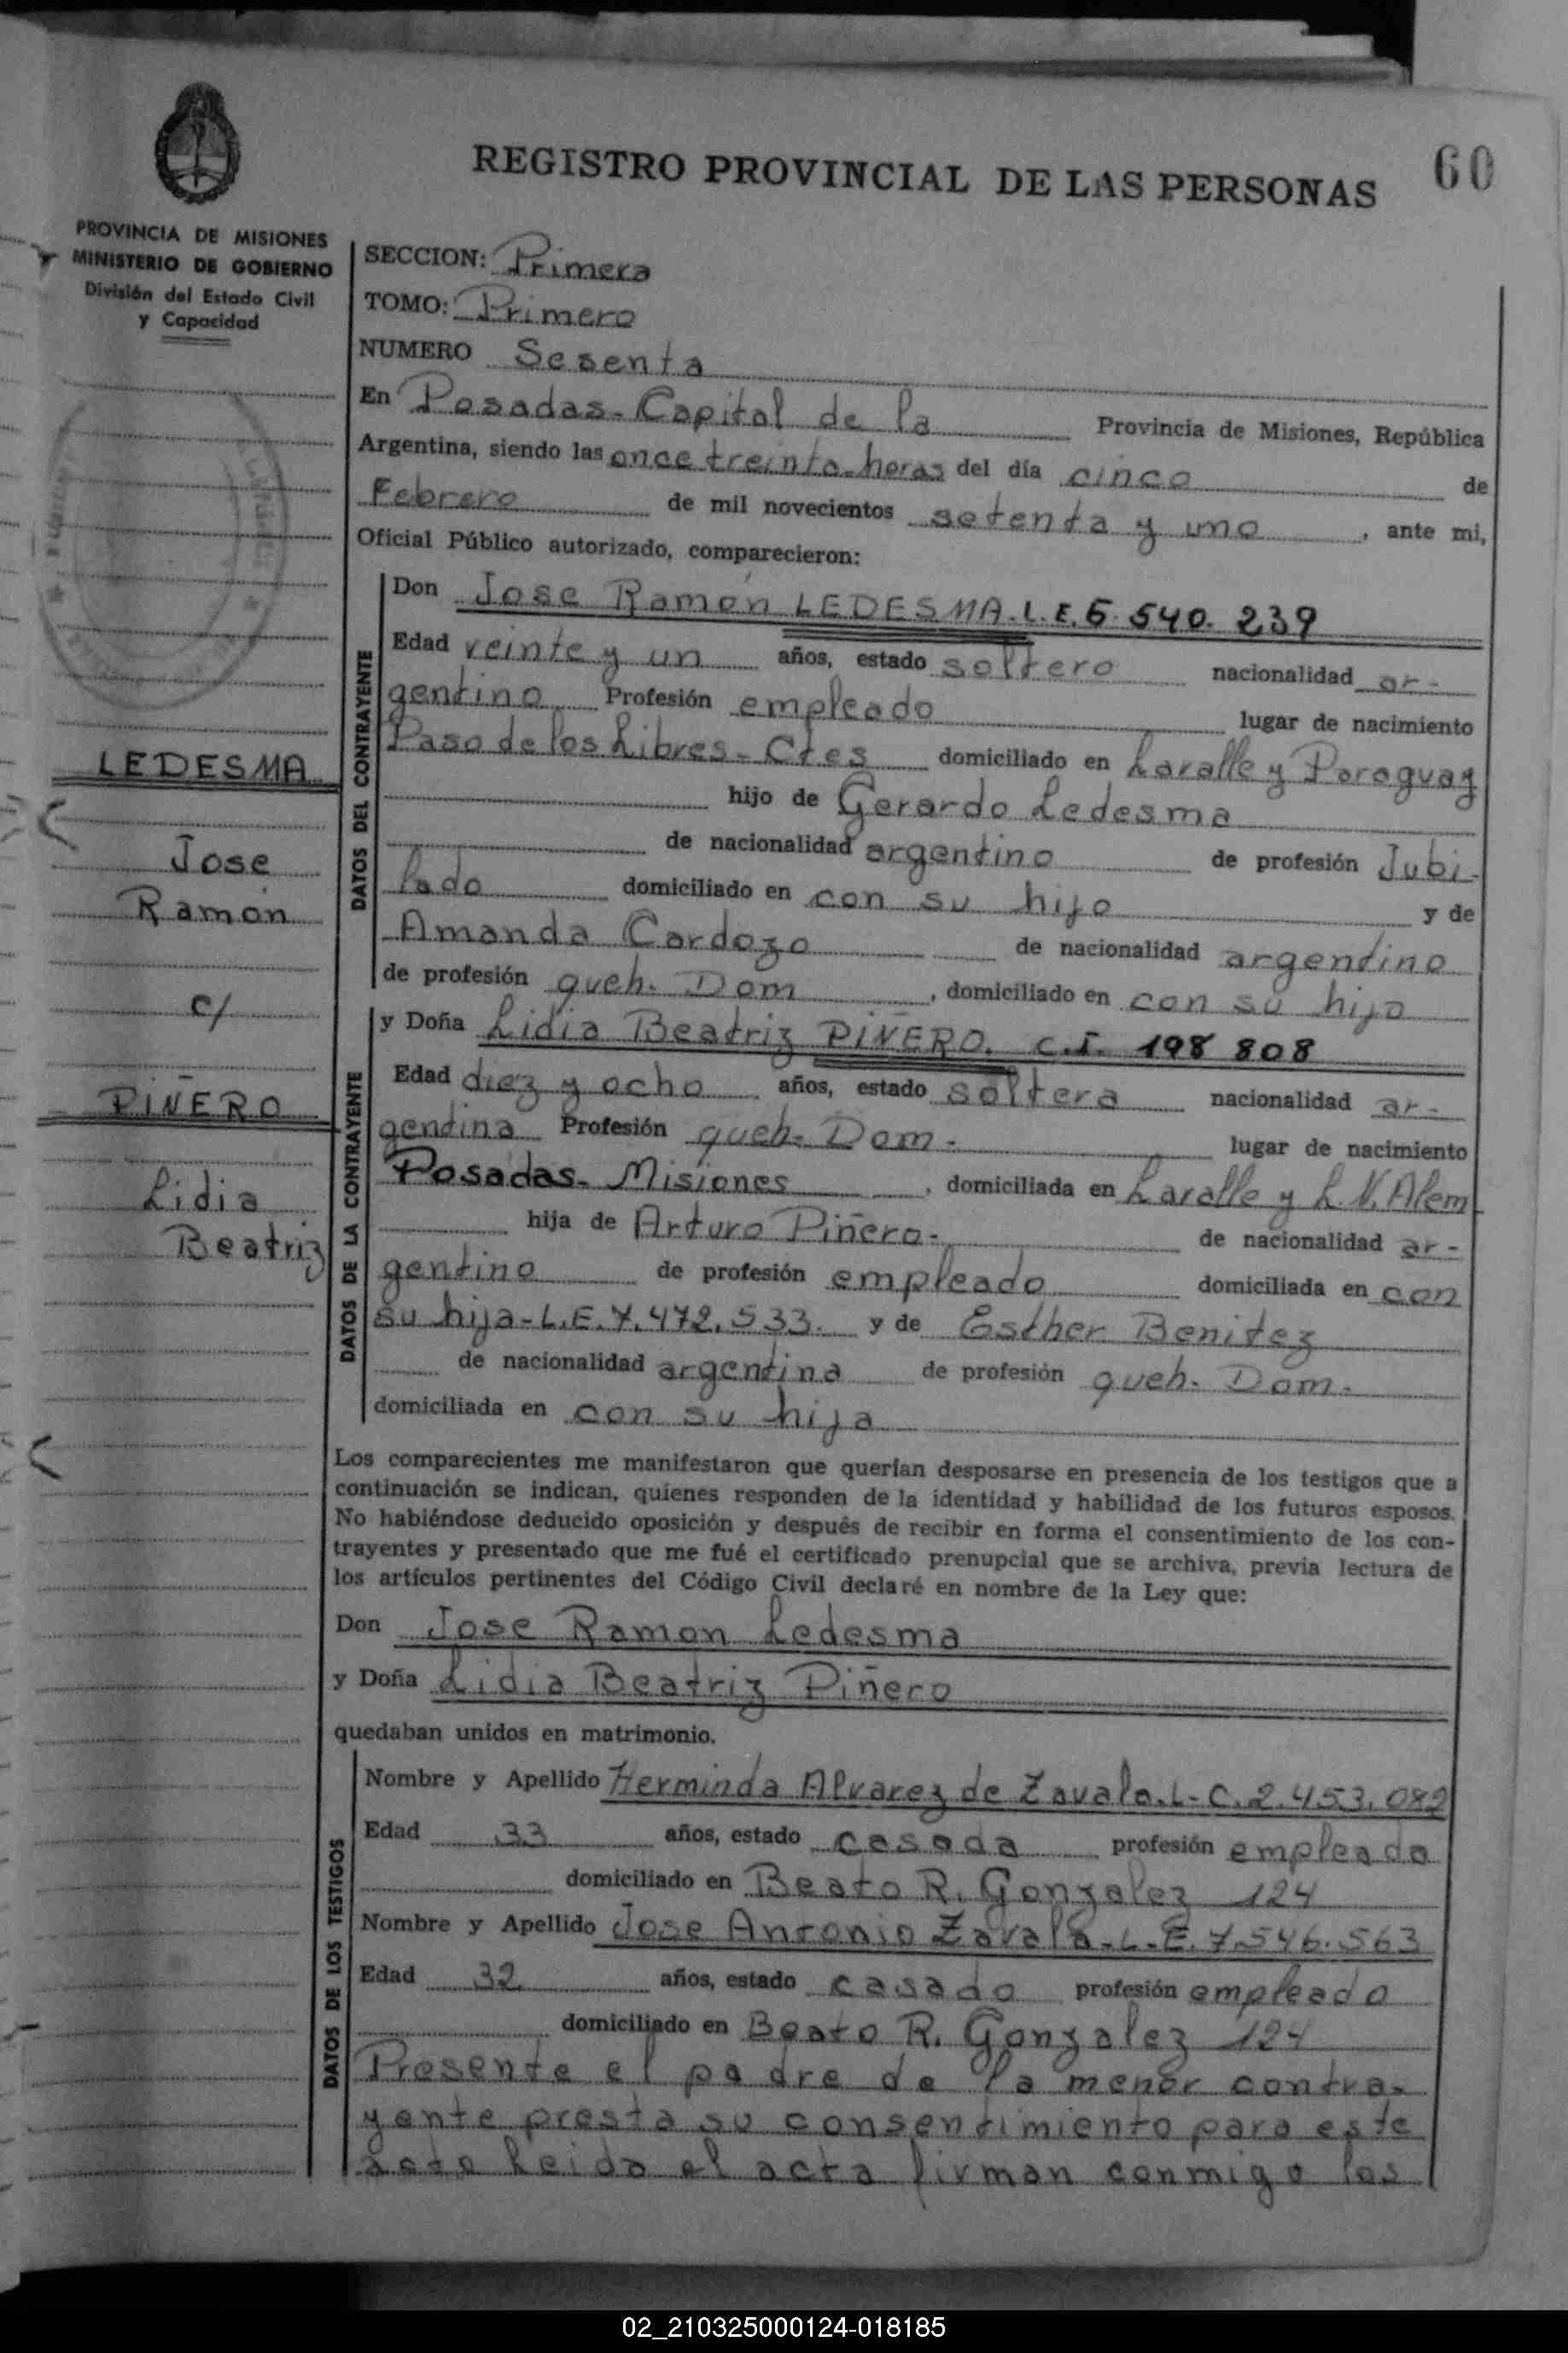 REGISTRO PROVINCIAL DE LAS PERSONAS
60
PROVINCIA DE MISIONES
MINISTERIO DE GOBIERNO
División del Estado Civil
y Capacidad
LEDESMA
Jose
Ramón
c/
PIÑERO
Lidia
Beatriz
SECCION: Primera
TOMO: Primero
NUMERO Sesenta
En Posadas-Capital de la Provincia de Misiones, República
Argentina, siendo las once treinta horas del día cinco de
Febrero de mil novecientos setenta y uno, ante mi,
Oficial Público autorizado, comparecieron:
DATOS DEL CONTRAYENTE
Don Jose Ramón LEDESMA.L.E. 540.239
Edad veinte y un años, estado soltero nacionalidad ar-
gentino Profesión empleado lugar de nacimiento
Paso de los Libres-Ctes domiciliado en Lavalle y Paraguay
hijo de Gerardo Ledesma
de nacionalidad argentino de profesión Jubi-
lado domiciliado en con su hijo y de
Amanda Cardozo de nacionalidad argentino
de profesión queh. Dom, domiciliado en con su hijo
DATOS DE LA CONTRAYENTE
y Doña Lidia Beatriz PIÑERO. C.I. 198 808
Edad diez y ocho años, estado soltera nacionalidad ar-
gentina Profesión queh. Dom. lugar de nacimiento
Posadas-Misiones, domiciliada en Lavalle y L.N.Alem
hija de Arturo Piñero- de nacionalidad ar-
gentino de profesión empleado domiciliada en con
su hija-L.E.7.472.533. y de Esther Benitez
de nacionalidad argentina de profesión queh. Dom.
domiciliada en con su hija
Los comparecientes me manifestaron que querían desposarse en presencia de los testigos que a
continuación se indican, quienes responden de la identidad y habilidad de los futuros esposos.
No habiéndose deducido oposición y después de recibir en forma el consentimiento de los con-
trayentes y presentado que me fué el certificado prenupcial que se archiva, previa lectura de
los artículos pertinentes del Código Civil declaré en nombre de la Ley que:
Don Jose Ramon Ledesma
y Doña Lidia Beatriz Piñero
quedaban unidos en matrimonio.
DATOS DE LOS TESTIGOS
Nombre y Apellido Herminda Alvarez de Zavala.L-C.2.453.082
Edad 33 años, estado casada profesión empleada
domiciliado en Beato R. Gonzalez 124
Nombre y Apellido Jose Antonio Zavala-L.E.7.546.563
Edad 32 años, estado casado profesión empleado
domiciliado en Beato R. Gonzalez 124
Presente el padre de la menor contra-
yente presta su consentimiento para este
acto Leida el acta firman conmigo los
02_210325000124-018185